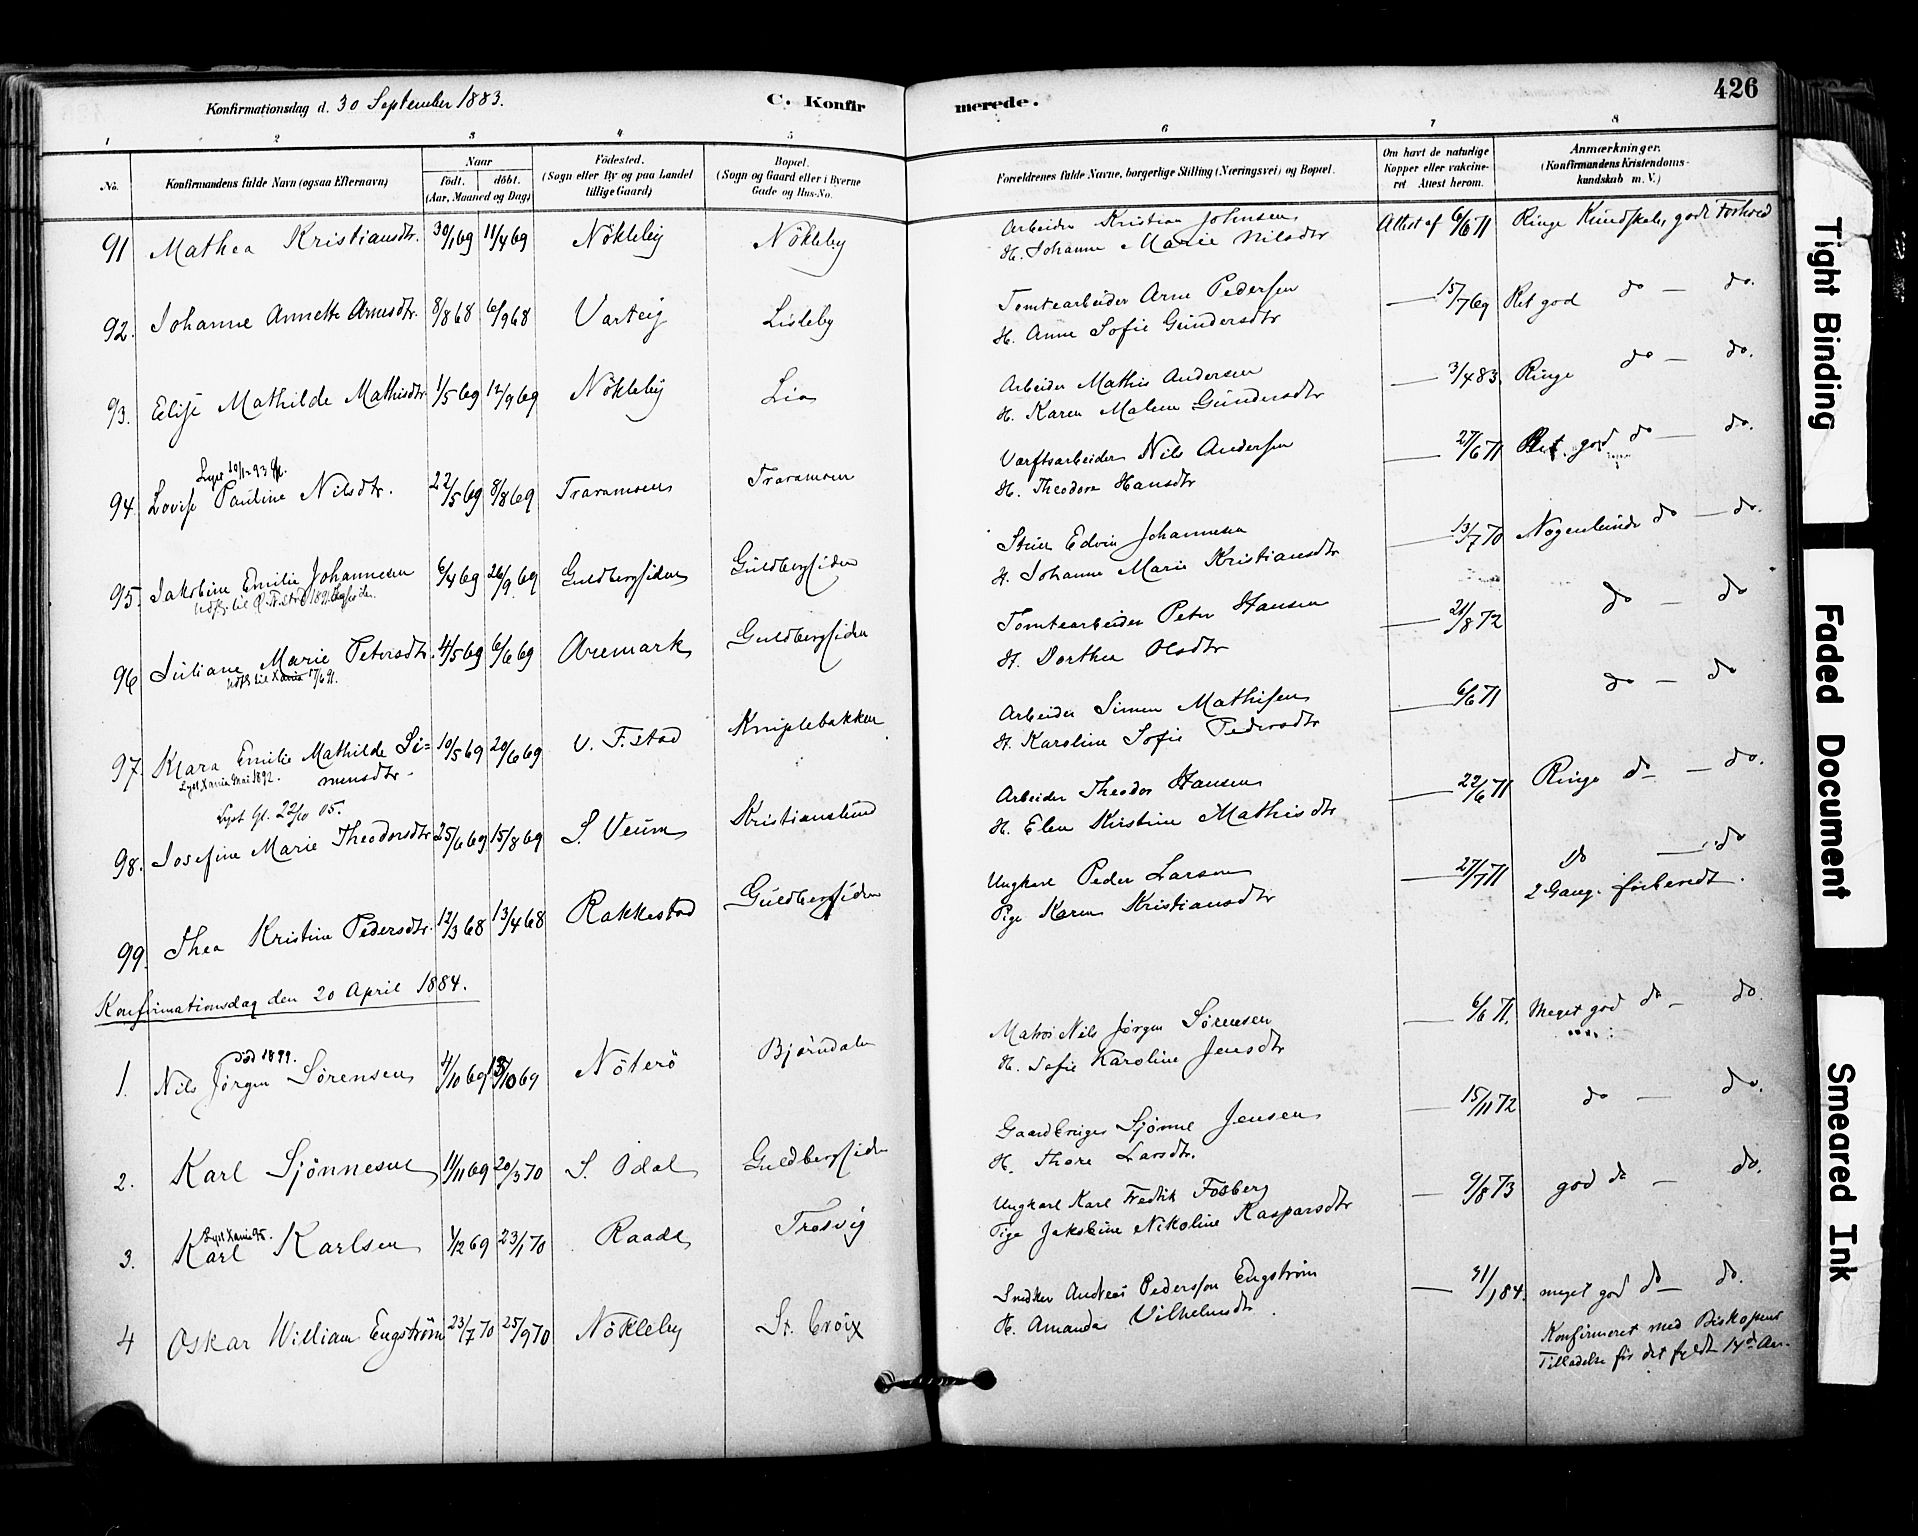 426
Konfirmationsdag d. 30 September 1883.
C. Konfirmerede.
1 2 3 4 5 6 7 8
No.
Konfirmandens fulde Navn (ogsaa Efternavn)
Naar
født. døbt.
(Aar, Maaned og Dag)
Fødested.
(Sogn eller By og paa Landet
tillige Gaard)
Bopæl.
(Sogn og Gaard eller i Byerne
Gade og Hus-No.
Forældrenes fulde Navne, borgerlige Stilling (Næringsvei) og Bopæl.
Om havt de naturlige
Kopper eller vakcine-
ret Attest herom.
Anmærkninger.
(Konfirmandens Kristendoms-
kundskab m. V.)
91 Mathea Kristiansdtr. 30/1 69 11/4 69 Nökleby Nökleby Arbeider Kristian Johnsen Attest af 6/6 71 Ringe Kundskab, godt Forhold
H. Johanne Marie Nilsdtr
92. Johanne Annette Arnesdtr. 8/8 68 6/9 68 Varteig Lisleby Tomtearbeider Arne Pedersen — 15/7 69 Ret god do — do.
H. Anne Sofie Gundersdtr
93. Elise Mathilde Mathisdtr 1/5 69 12/9 69 Nökleby Lia Arbeider Mathis Andersen — 3/4 83. Ringe do — do.
H. Karen Malene Gundersdtr
94. Lovise Pauline Nilsdtr. 22/5 69 8/8 69 Traramoen Traramoen Værftsarbeider Nils Andersen — 27/6 71 Ret god do — do.
H. Theodora Hansdtr
95. Jakobine Emilie Johannesen 6/4 69 26/9 69 Guldbergsiden Guldbergsiden Stuer Edvin Johannesen — 13/7 70 Nogenlunde do — do.
H. Johanne Marie Kristiansdtr
96 Juliane Marie Petersdtr. 4/5 69 6/6 69 Aremark Guldbergsiden Tomtearbeider Peter Hansen — 21/8 72 do — do
Udfl. til Xania 17/6 91.
H. Dorthea Olsdtr
97 Klara Emilie Mathilde Si=
mensdtr. 10/5 69 20/6 69 V. F.stad Kniplebakken Arbeider Simen Mathisen — 6/6 71 do — do
Lyst Xania Mai 1892.
H. Karoline Sofie Pedersdtr
Lyst Gl. 22/10 05.
98. Josefine Marie Theodorsdtr 25/6 69 15/8 69 S. Veum Kristianslund Arbeider Theodor Hansen — 22/6 71 Ringe do — do.
H. Elen Kirstine Mathisdtr
99. Thea Kristine Pedersdtr. 12/3 68 13/4 68 Rakkestad Guldbergsiden Ungkarl Peder Larsen — 27/7 71 Do — do
Pige Karen Kristiansdtr 2 Gang. forberedt.
Konfirmationsdag den 20 April 1884.
død 1899.
1. Nils Jørgen Sørensen 4/10 69 10 69 Nöterö Bjørndalen Matros Nils Jørgen Sørensen — 6/6 71. Meget god do — do.
H. Sofie Karoline Jensdtr
2. Karl Sjönnesen 11/11 69 20/3 70 S. Odal Guldbergsiden Gaardbruger Sjönne Jensen — 15/11 72 do — do.
H. Thore Larsdtr.
Lyst Xania 95.
3. Karl Karlsen 1/12 69 23/1 70 Raade Trosvig Ungkarl Karl Fredrik Fosberg — 9/8 73 god do — do.
Pige Jakobine Nikoline Kaspersdtr
4 Oskar William Engström 23/7 70 25/9 70 Nökleby St. Croix Snedker Andreas Pedersson Engström — 31/1 84. meget god do — do.
H. Amanda Vilhelmsdtr.
Konfirmeret med Biskopens
Tilladelse før det fyldte 14de Aar.
Tight Binding
Faded Document
Smeared Ink